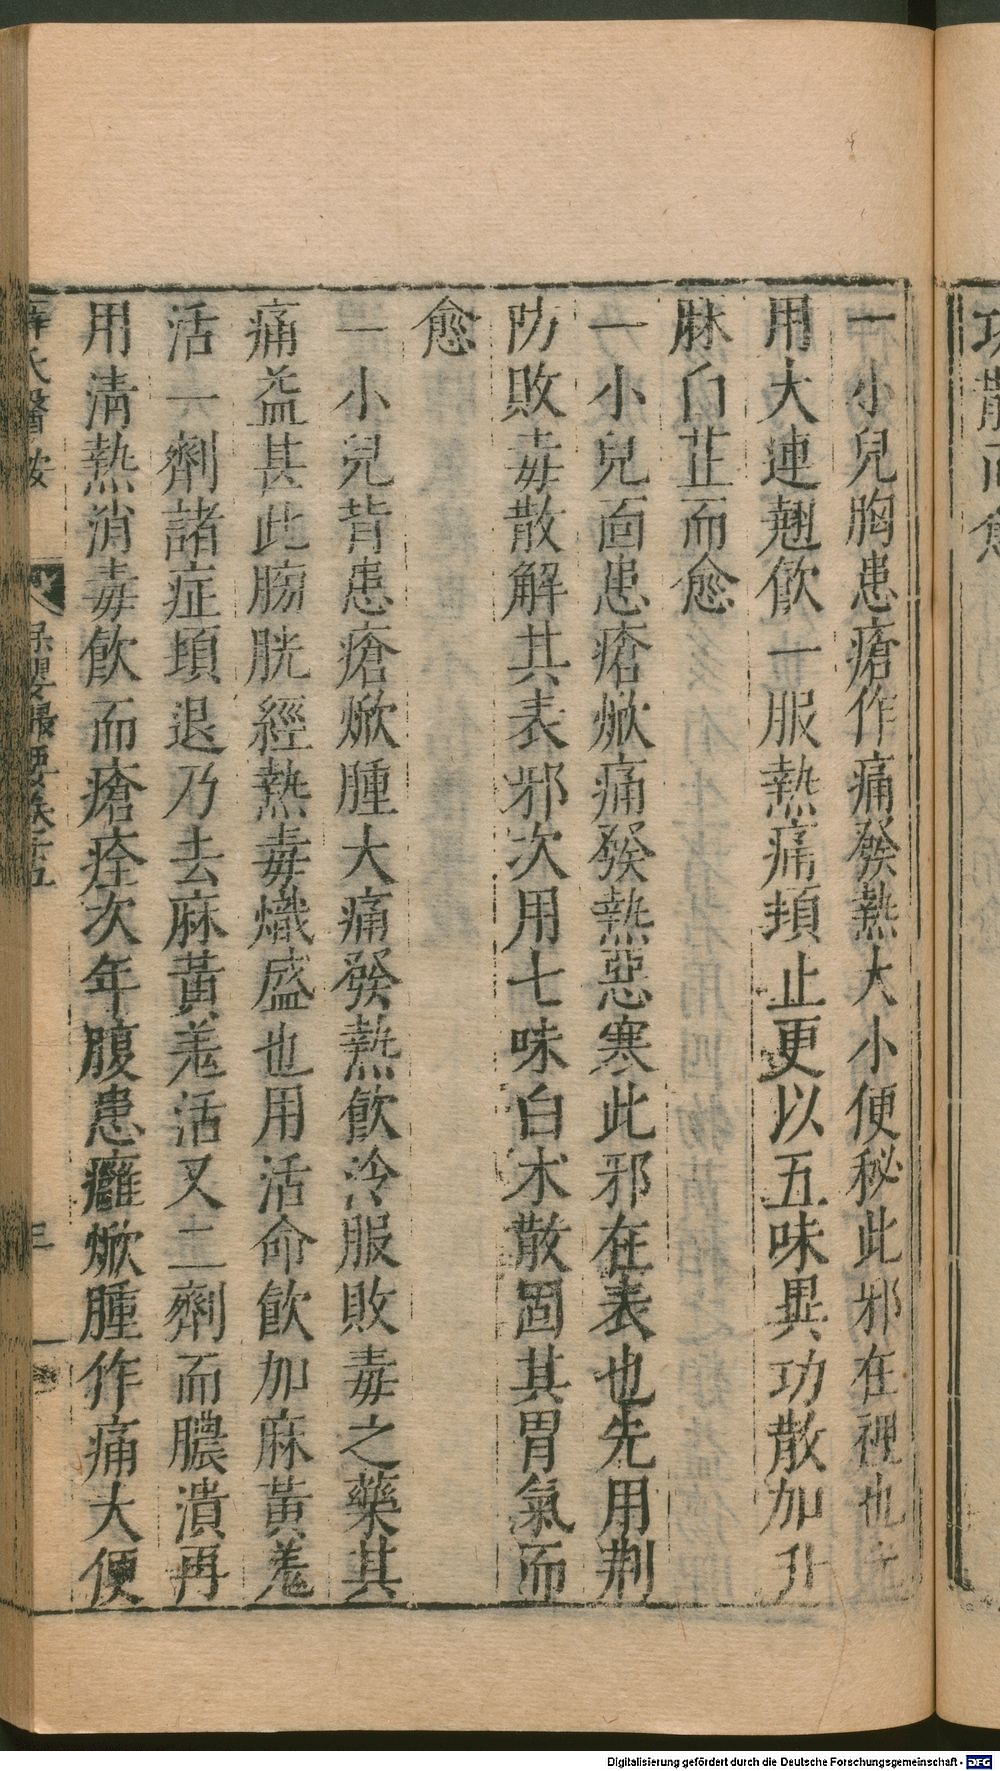 功散而愈
一小兒胸患瘡作痛發熱大小便秘此邪在裡也先
用大連翹飲一服熱痛頓止更以五味異功散加升
麻白芷而愈
一小兒面患瘡焮痛發熱惡寒此邪在表也先用荆
防敗毒散解其表邪次用七味白朮散固其胃氣而
愈
一小兒背患瘡焮腫大痛發熱飲冷服敗毒之藥其
痛益甚此膀胱經熱毒熾盛也用活命飲加麻黃羌
活一劑諸症頓退乃去麻黃羌活又二劑而膿潰再
用清熱消毒飲而瘡痊次年腹患癰焮腫作痛大便
薛氏醫按 保嬰撮要卷十五 三
Digitalisierung gefördert durch die Deutsche Forschungsgemeinschaft - DFG